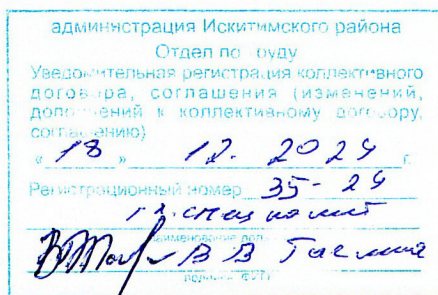 администрация Искитимского района
Отдел по труду
Уведомительная регистрация коллективного
договора, соглашения (изменений,
дополнений к коллективному договору,
соглашению)
« 18 » 12. 2024 г.
Регистрационный номер 35-24
гл. специалист
наименование
В В
подпись ФИО